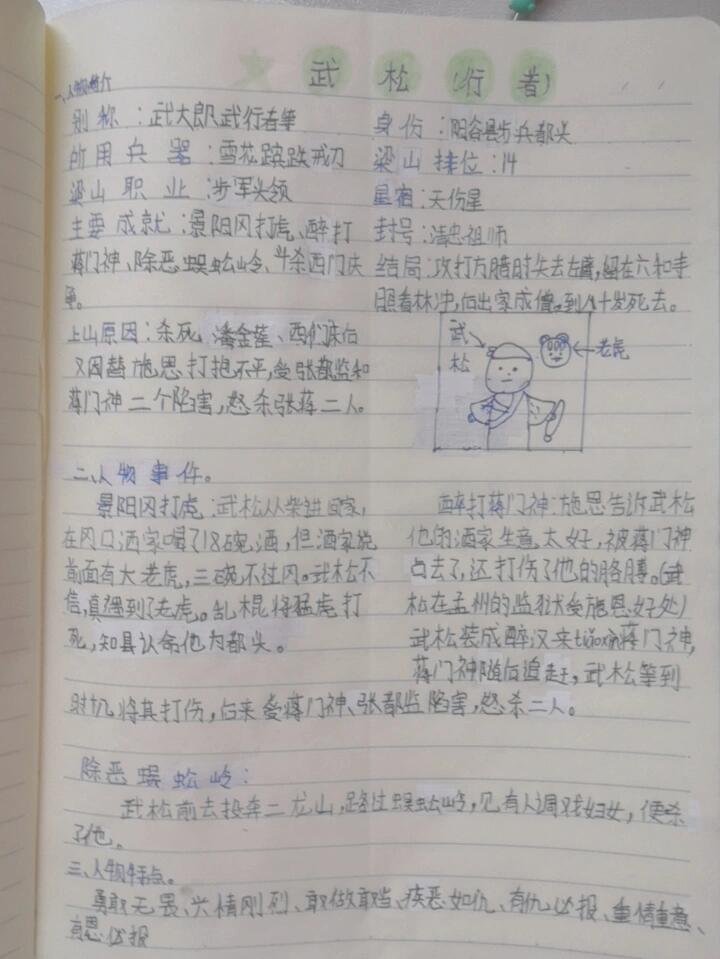 武松(行者)
一、人物简介
别称:武大郎、武行者等
所用兵器:雪花镔跌戒刀
梁山职业:步军头领
主要成就:景阳冈打虎、醉打
蒋门神、除恶蜈蚣岭、斗杀西门庆
等。
上山原因:杀死潘金莲、西门庆后
又因替施恩打抱不平,受张都监和
蒋门神二个陷害,怒杀张蒋二人。
身份:阳谷县步兵都头
梁山排位:14
星宿:天伤星
封号:清忠祖师
结局:攻打方腊时失去左臂,留在六和寺
照看林冲,后出家成僧。到八十岁死去。
武松
老虎
二、人物事件。
景阳冈打虎:武松从柴进回家,
在冈口酒家喝了18碗酒,但酒家说
前面有大老虎,三碗不过冈。武松不
信,真遇到了老虎。乱棍将猛虎打
死,知县认命他为都头。
醉打蒋门神:施恩告诉武松
他的酒家生意太好,被蒋门神
占去了,还打伤了他的胳膊。(武
松在孟州的监狱受施恩好处)
武松装成醉汉来tiáoxìn蒋门神,
蒋门神随后追赶,武松等到
时机将其打伤,后来受蒋门神、张都监陷害,怒杀二人。
除恶蜈蚣岭:
武松前去投奔二龙山,路过蜈蚣岭,见有人调戏妇女,便杀
了他。
三、人物特点。
勇敢无畏、性情刚烈、敢做敢当、疾恶如仇、有仇必报、重情重意、
有恩必报